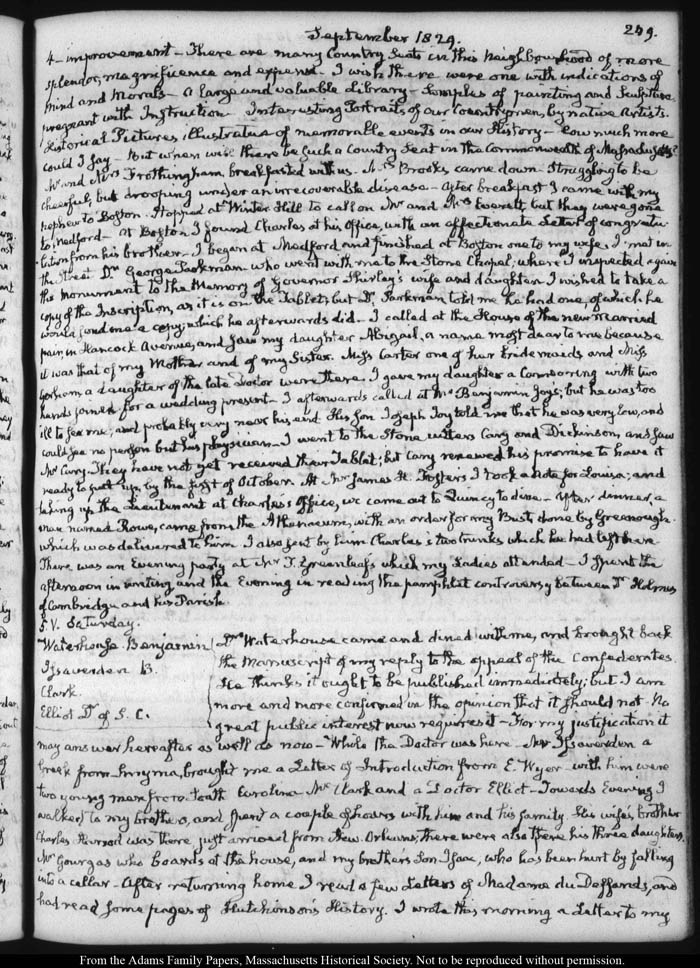 September 1829. 249.
4 - improvement - There are many Country Seats in this neighbourhood of more
splendor, magnificence and expence - I wish there were one with indications of
mind and Morals - a large and valuable Library - Samples of painting and Sculpture
pregnant with Instruction - Interesting Portraits of our Countrymen, by native Artists.
Historical Pictures, illustrative of memorable events in our History - how much more
could I say - But when will there be such a Country Seat in the Commonwealth of Massachusetts?
Mr and Mrs Frothingham, breakfasted with us. Mrs Brooks came down - Struggling to be
cheerful, but drooping under an irrecoverable disease - After breakfast I came with my
nephew to Boston. Stopped at Winter Hill to call on Mr and Mrs Everett, but they were gone
to Medford - At Boston I found Charles at his Office, with an affectionate Letter of congratu-
lation from his brother. I began at Medford and finished at Boston one to my wife. I met in
the Street Dr George Parkman who went with me to the Stone Chapel; where I inspected again
the monument to the Memory of Governor Shirley's wife and daughter. I wished to take a
copy of the Inscription, as it is on the Tablet; but Dr Parkman told me he had one, of which he
would send me a copy; which he afterwards did - I called at the House of the new married
pair in Hancock Avenue, and saw my daughter Abigail, a name most dear to me because
it was that of my Mother and of my Sister. Miss Carter one of her bridemaids and Miss
Gorham a daughter of the late Doctor were there. I gave my daughter a Cameo ring with two
hands joined for a wedding present - I afterwards called at Mr Benjamin Joy's; but he was too
ill to see me; and probably very near his end. His Son Joseph Joy told me that he was very low, and
could see no person but his physician - I went to the Stone cutters Cary and Dickinson, and saw
Mr Cary. They have not yet received their Tablet; but Cary renewed his promise to have it
ready to put up, by the first of October. At Mr James H. Foster's I took a note for Louisa; and
taking up the Lieutenant at Charles's Office, we came out to Quincy to dine - After dinner, a
man named Rowe, came from the Athenaeum, with an order for my Bust, done by Greenough.
which was delivered to him. I also sent by him Charles's two trunks which he had left here
There was an Evening party at Mr T. Greenleaf's which my Ladies attended - I spent the
afternoon in writing and the Evening in reading the pamphlet controversy between Dr Holmes
of Cambridge and his Parish.
5. V. Saturday.
Waterhouse Benjamin
Issaverden B.
Clark.
Elliot Dr of S. C.
Dr Waterhouse came and dined with me, and brought back
the Manuscript of my reply to the appeal of the Confederates.
He thinks it ought to be published immediately; but I am
more and more confirmed in the opinion that it should not. No
great public interest now requires it - For my justification it
may answer hereafter as well as now - While the Doctor was here - Mr Issaverden a
Greek from Smyrna, brought me a Letter of Introduction from E. Wyer - with him were
two young men from South Carolina Mr Clark and a Doctor Elliot - Towards Evening I
walked to my brother's, and spent a couple of hours with him and his family. His wife's brother
Charles Harrod was there just arrived from New Orleans; there were also there his three daughters,
Mr Gourgas who boards at the house, and my brother's Son Isaac, who has been hurt by falling
into a cellar - After returning home I read a few Letters of Madame du Deffand's, and
had read some pages of Hutchinson's History. I wrote this morning a Letter to my
From the Adams Family Papers, Massachusetts Historical Society. Not to be reproduced without permission.